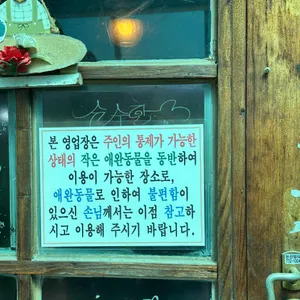 본 영업장은 주인의 통제가 가능한
상태의 작은 애완동물을 동반하여
이용이 가능한 장소로,
애완동물로 인하여 불편함이
있으신 손님께서는 이점 참고하
시고 이용해 주시기 바랍니다.